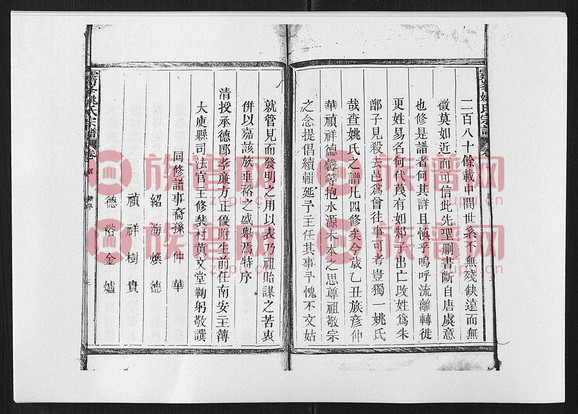 二百八十餘載中間世系不無殘缺遠而無
徵莫如近而可信此先聖刪書斷自唐虞意
也修是譜者何其詳且慎乎嗚呼流離轉徙
更姓易名何代蔑有如鄒子出亡改姓為朱
鄫子見殺去邑為會往事可考豈獨一姚氏
哉查姚氏之譜凡四修矣今歲乙丑族彥仲
華禎祥德馨等抱水源木本之思尊祖敬宗
之念提倡續輯延予主任其事予愧不文姑
就管見而發明之用以表乃祖貽謀之苦衷
併以嘉該族垂裕之盛舉焉特序
清授承德郎孝廉方正優附生前任南安主簿
大庾縣司法官主修裴村黃文堂鞠躬敬譔
同修譜事裔孫仲華
紹海煥德
禎祥樹貴
德裕全爐
族譜网
zupu.cn